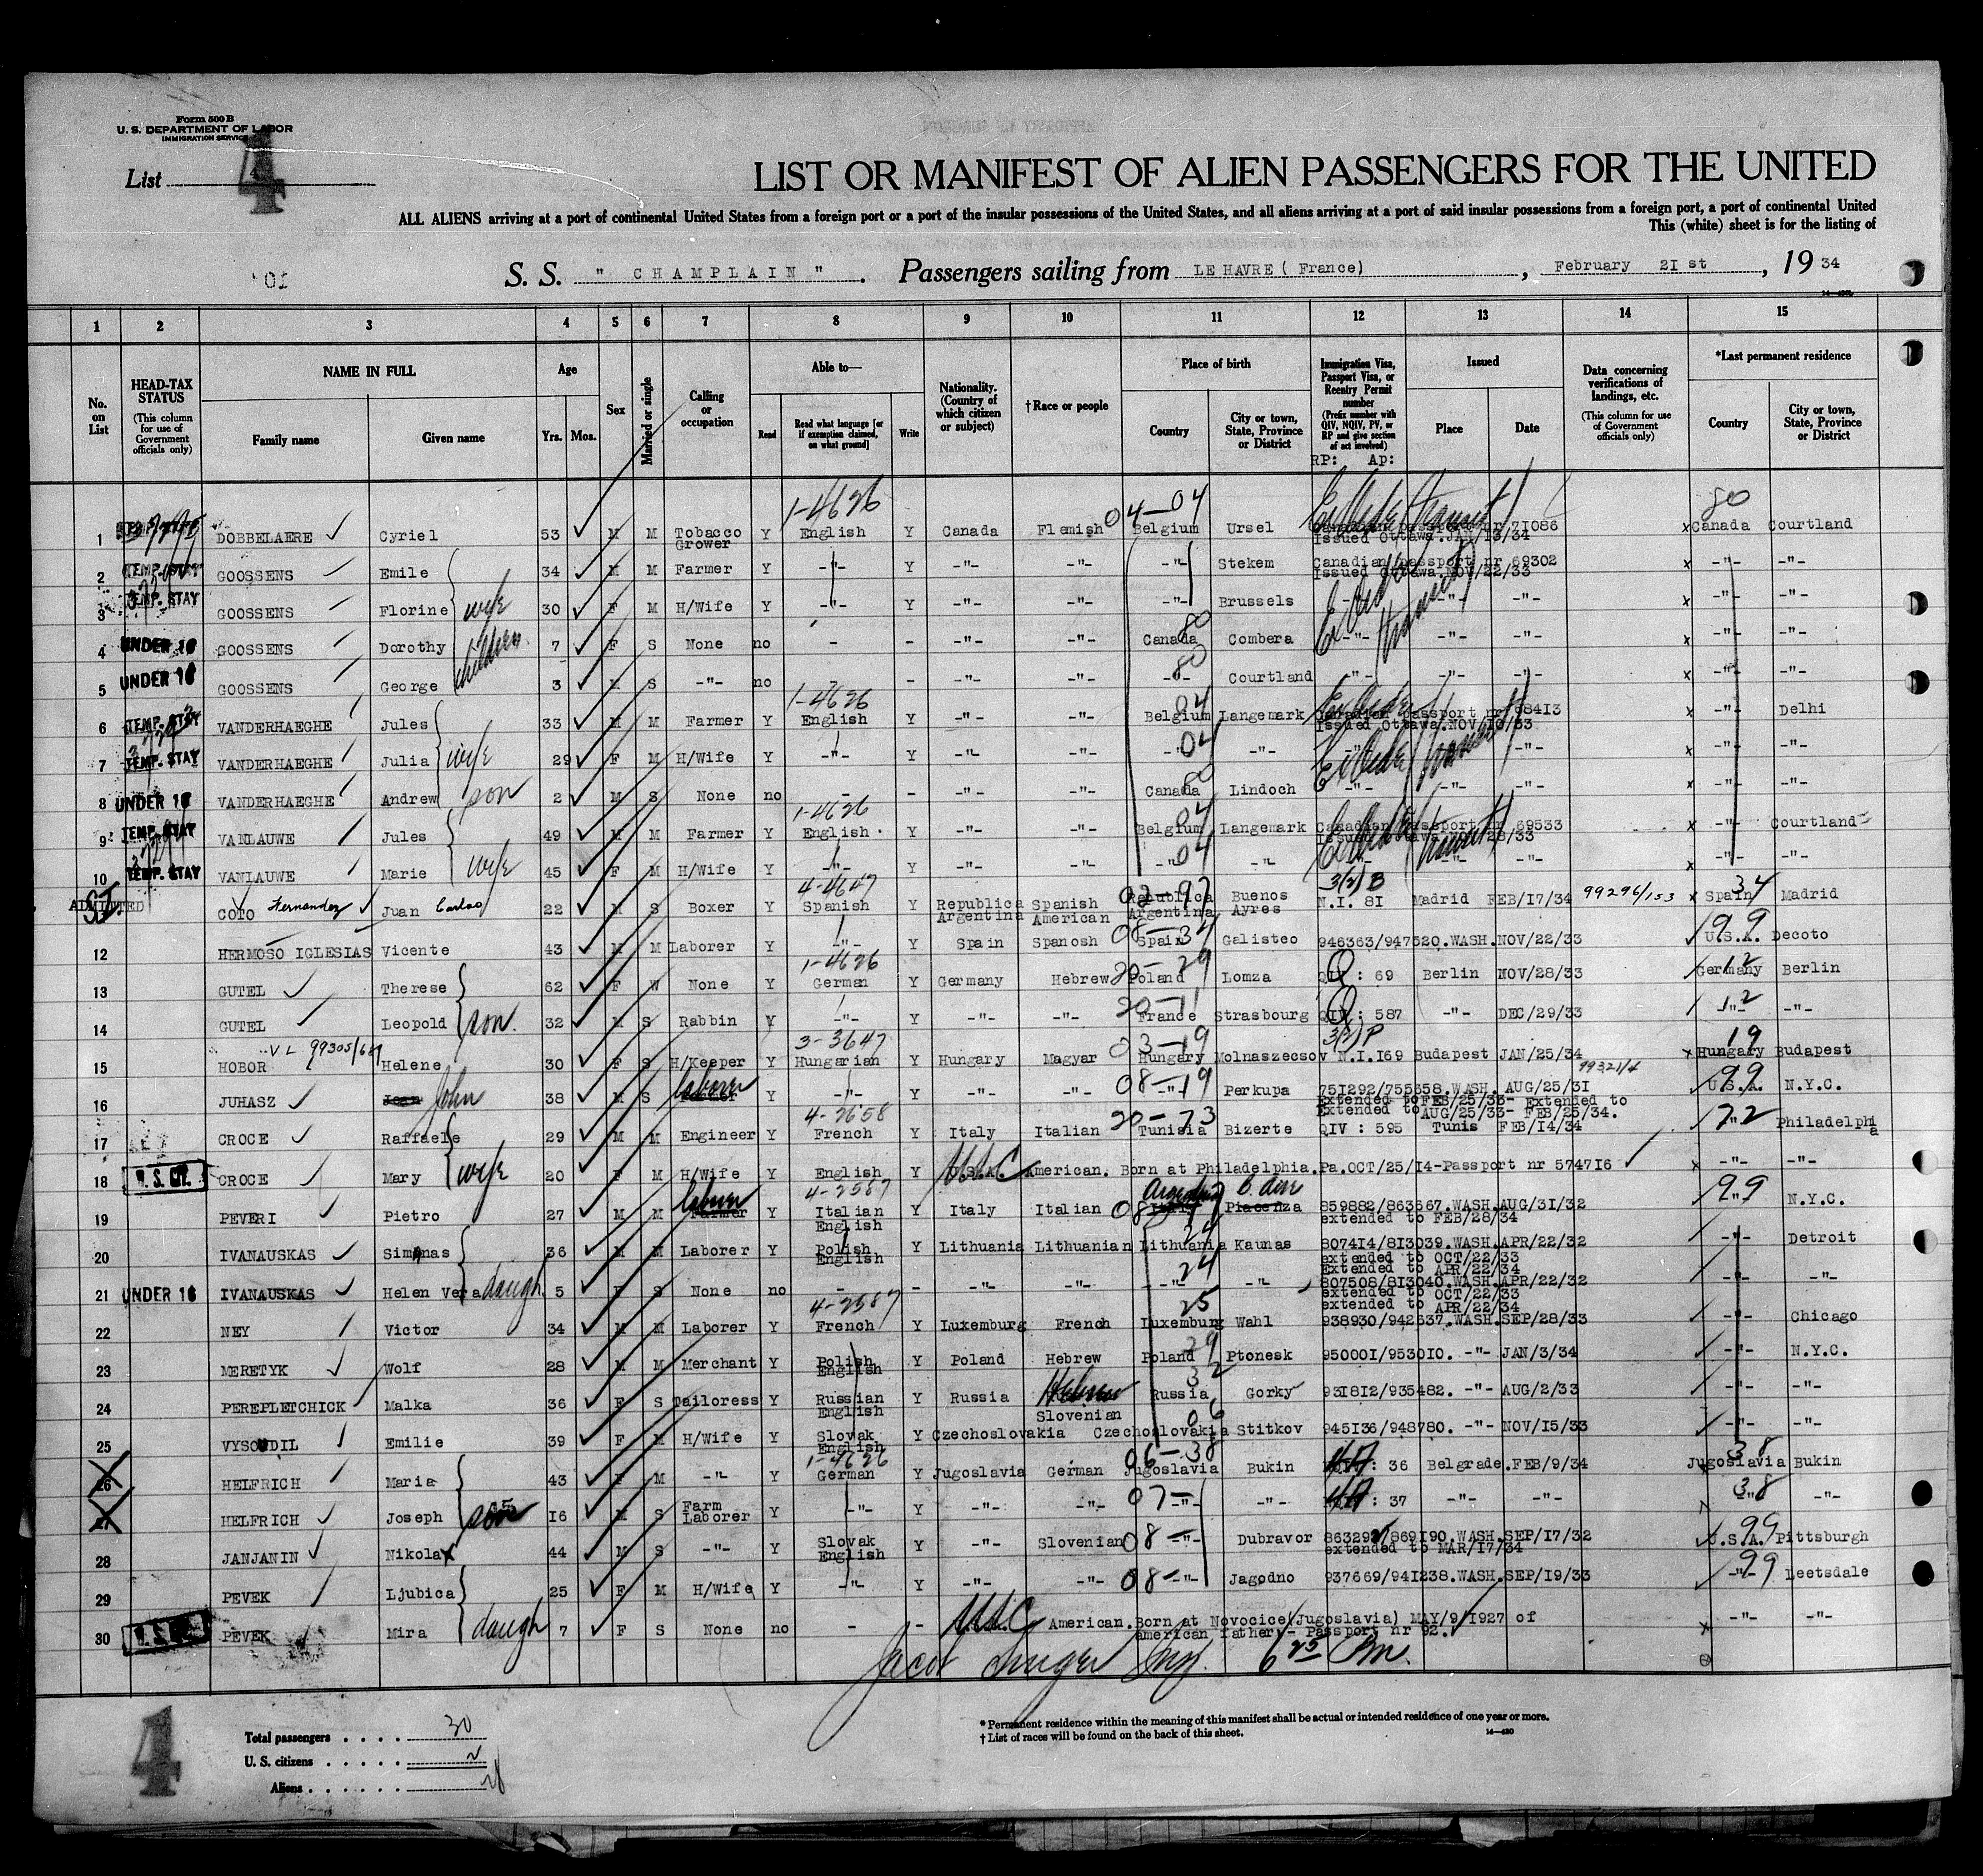 Form 500 B
U. S. DEPARTMENT OF LABOR
IMMIGRATION SERVICE
List 4
4
LIST OR MANIFEST OF ALIEN PASSENGERS FOR THE UNITED
ALL ALIENS arriving at a port of continental United States from a foreign port or a port of the insular possessions of the United States, and all aliens arriving at a port of said insular possessions from a foreign port, a port of continental United
This (white) sheet is for the listing of
S. S. " CHAMPLAIN ". Passengers sailing from LE HAVRE ( France) , February 2Ist , 19 34
1 2 3 4 5 6 7 8 9 10 11 12 13 14 15
No. on List
HEAD-TAX STATUS (This column for use of Government officials only)
NAME IN FULL Family name Given name
Age Yrs. Mos.
Sex
Married or single
Calling or occupation
Able to— Read Read what language [or if exemption claimed, on what ground] Write
Nationality. (Country of which citizen or subject)
† Race or people
Place of birth Country City or town, State, Province or District
Immigration Visa, Passport Visa, or Reentry Permit number (Prefix number with QIV, NQIV, PV, or RP and give section of act involved)
RP: Ap:
Issued Place Date
Data concerning verifications of landings, etc. (This column for use of Government officials only)
*Last permanent residence Country City or town, State, Province or District
1-4626 04-04 80
1 DOBBELAERE Cyriel 53 M M Tobacco Grower Y English Y Canada Flemish Belgium Ursel Canadian passport nr 7I086 Issued Ottawa.JAN/I3/34 x Canada Courtland
2 TEMP. STAY GOOSSENS Emile 34 M M Farmer Y -"- Y -"- -"- -"- Stekem Canadian passport nr 69302 Issued Ottawa.NOV/22/33 x -"- -"-
3 TEMP. STAY GOOSSENS Florine wife 30 F M H/Wife Y -"- Y -"- -"- -"- Brussels -"- -"- x -"- -"-
4 UNDER 16 GOOSSENS Dorothy children 7 F S None no - - -"- -"- Canada 80 Combera -"- -"- -"- x -"- -"-
5 UNDER 16 GOOSSENS George 3 M S -"- no - - -"- -"- -"- 80 Courtland -"- -"- -"- x -"- -"-
1-4626 04
6 TEMP. STAY VANDERHAEGHE Jules 33 M M Farmer Y English Y -"- -"- Belgium Langemark Canadian passport nr 684I3 Issued Ottawa.NOV/I0/33 x -"- Delhi
7 TEMP. STAY VANDERHAEGHE Julia wife 29 F M H/Wife Y -"- Y -"- -"- 04 -"- -"- -"- x -"- -"-
8 UNDER 16 VANDERHAEGHE Andrew son 2 M S None no - - -"- -"- Canada 80 Lindoch -"- -"- -"- x -"- -"-
1-4626 04
9 TEMP. STAY VANLAUWE Jules 49 M M Farmer Y English Y -"- -"- Belgium Langemark Canadian passport nr 69533 Issued Ottawa.NOV/28/33 x -"- Courtland
10 TEMP. STAY VANLAUWE Marie wife 45 F M H/Wife Y -"- Y -"- -"- -"- 04 -"- -"- -"- x -"- -"-
4-4647 02-97 3(2) B 34
ADMITTED SI COTO Fernandez Juan Carlos 22 M S Boxer Y Spanish Y Republica Argentina Spanish American Republica Argentina Buenos Ayres N.I. 8I Madrid FEB/I7/34 99296/153 x Spain Madrid
12 HERMOSO IGLESIAS Vicente 43 M M Laborer Y -"- Y Spain Spanosh 08-34 Spain Galisteo 946363/947520.WASH.NOV/22/33 99 U.S.A. Decoto
1-4626 20-29 12
13 GUTEL Therese 62 F W None Y German Y Germany Hebrew Poland Lomza QIV : 69 Berlin NOV/28/33 Germany Berlin
14 GUTEL Leopold son. 32 M S Rabbin Y -"- Y -"- -"- 20-11 France Strasbourg QIV : 587 -"- DEC/29/33 12 -"- -"-
V L 99305/687 3-3647 03-19 3(2) P 19
15 HOBOR Helene 30 F S H/Keeper Y Hungarian Y Hungary Magyar Hungary Molnaszecsov N.I.I69 Budapest JAN/25/34 x Hungary Budapest
16 JUHASZ John 38 M S laborer Y -"- Y -"- -"- 08-19 -"- Perkupa 75I292/755658.WASH. AUG/25/3I Extended to FEB/25/33- Extended to Extended to AUG/25/33- FEB/25/34. 99321/4 99 U.S.A. N.Y.C.
4-2658 20-73
17 CROCE Raffaele 29 M M Engineer Y French Y Italy Italian Tunisia Bizerte QIV : 595 Tunis FEB/I4/34 -"- Philadelphia
18 U. S. CIT. CROCE Mary wife 20 F M H/Wife Y English Y U.S.A. USC American. Born at Philadelphia.Pa.OCT/25/I4-Passport nr 5747I6 x -"- -"-
4-2587 99
19 PEVERI Pietro 27 M M laborer Farmer Y Italian English Y Italy Italian 08 Argentina B. Aire Piacenza 859882/863667.WASH.AUG/3I/32 extended to FEB/28/34 -"- N.Y.C.
20 IVANAUSKAS Simonas 36 M M Laborer Y Polish English Y Lithuania Lithuanian Lithuania 24 Kaunas 8074I4/8I3039.WASH.APR/22/32 extended to OCT/22/33 extended to APR/22/34 -"- Detroit
21 UNDER 16 IVANAUSKAS Helen Vera daugh. 5 F S None no - - -"- -"- -"- 24 -"- 807508/8I3040.WASH.APR/22/32 extended to OCT/22/33 extended to APR/22/34 -"- -"-
4-2587 25
22 NEY Victor 34 M M Laborer Y French Y Luxemburg French Luxemburg Wahl 938930/942637.WASH.SEP/28/33 -"- Chicago
23 MERETYK Wolf 28 M M Merchant Y Polish English Y Poland Hebrew Poland 29 Ptonesk 95000I/9530I0. -"- JAN/3/34 -"- N.Y.C.
24 PEREPLETCHICK Malka 36 F S Tailoress Y Russian English Y Russia Hebrew Russia 32 Gorky 93I8I2/935482. -"- AUG/2/33 -"- -"-
25 VYSOUDIL Emilie 39 F M H/Wife Y Slovak English Y Czechoslovakia Slovenian Czechoslovakia 06 Stitkov 945I36/948780. -"- NOV/I5/33 -"- -"-
1-4626 06-38 38
26 HELFRICH Maria 43 F M -"- Y German Y Jugoslavia German Jugoslavia Bukin : 36 Belgrade.FEB/9/34 Jugoslavia Bukin
27 HELFRICH Joseph son 16 M S Farm Laborer Y -"- Y -"- -"- 07 -"- -"- : 37 -"- -"- 38 -"- -"-
28 JANJANIN Nikola 44 M S -"- Y Slovak English Y -"- Slovenian 08 -"- Dubravor 863292/869I90.WASH.SEP/I7/32 extended to MAR/I7/34 99 U.S.A. Pittsburgh
29 PEVEK Ljubica 25 F M H/Wife Y -"- Y -"- -"- 08 -"- Jagodno 937669/94I238.WASH.SEP/I9/33 99 -"- Leetsdale
30 PEVEK Mira daugh 7 F S None no - - USC American. Born at Novocice(Jugoslavia) MAY/9/I927 of american father.- Passport nr 92. x -"- -"-
Jacob Insp. 6 25 Pm.
4
Total passengers . . . . 30
U. S. citizens . . . . . 2
Aliens . . . . . . 28
* Permanent residence within the meaning of this manifest shall be actual or intended residence of one year or more.
† List of races will be found on the back of this sheet.
14—430